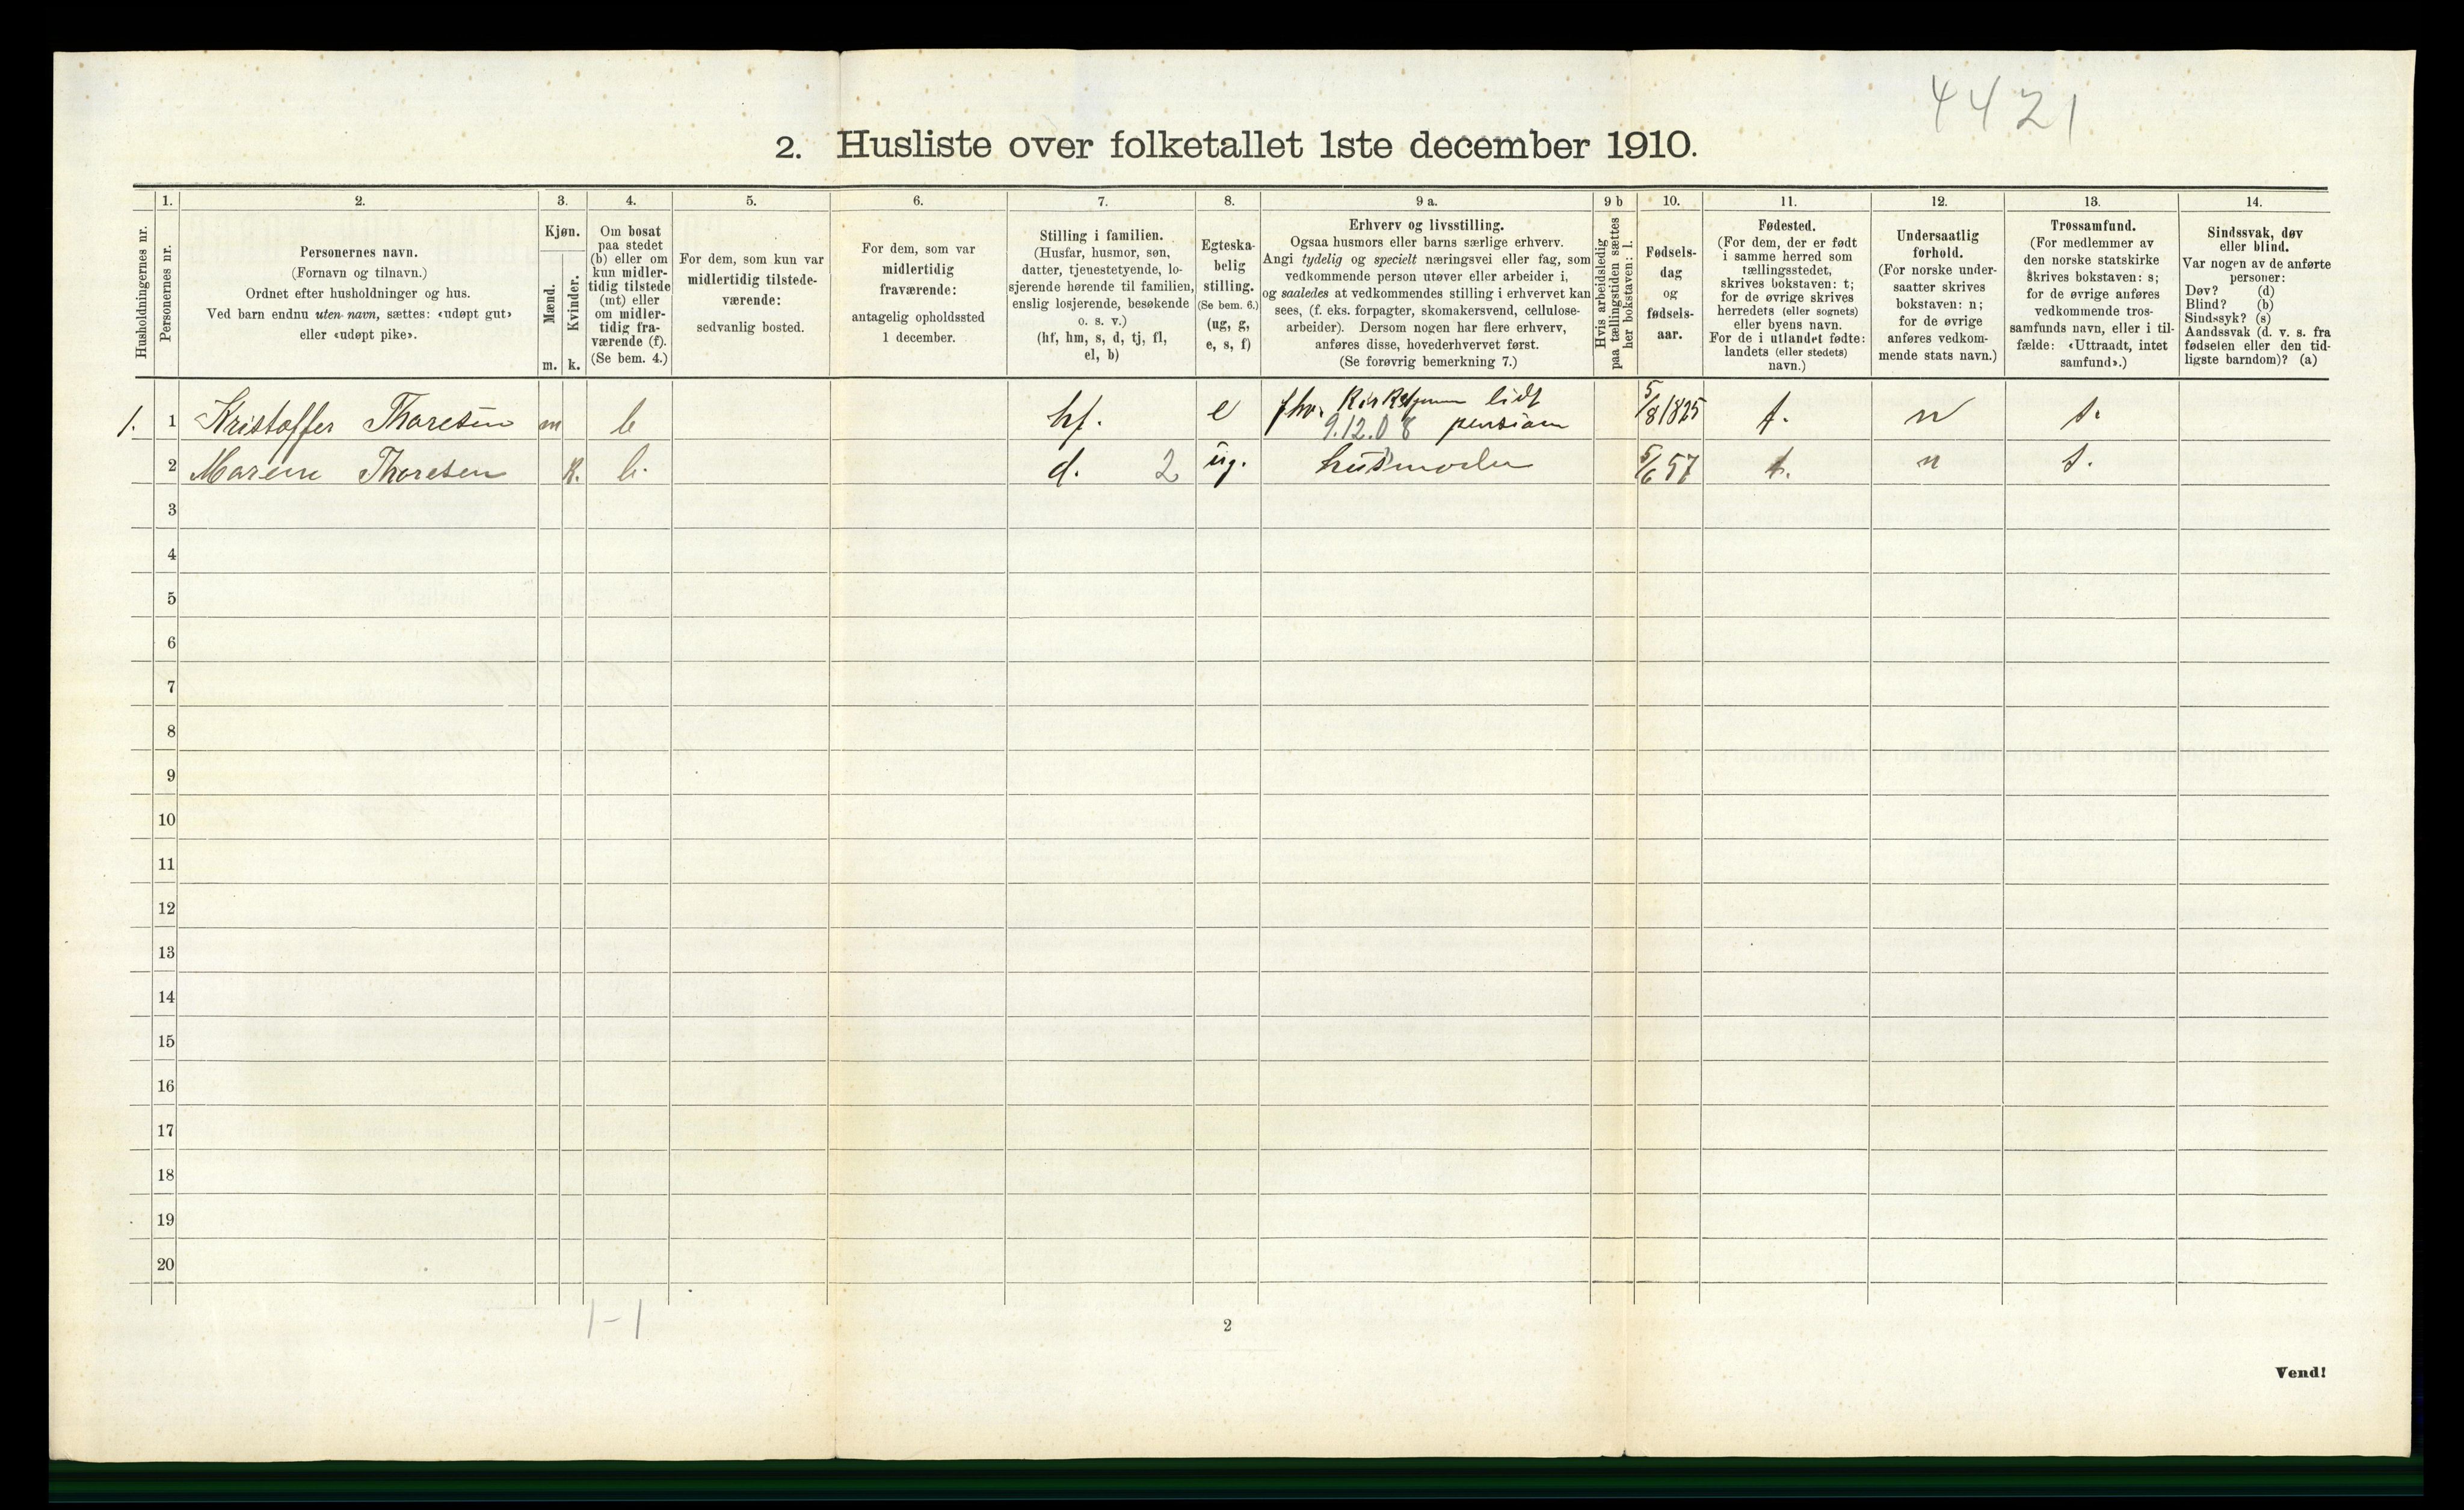 4421
2. Husliste over folketallet 1ste december 1910.
Husholdningernes nr.
1.
Personernes nr.
2.
Personernes navn.
(Fornavn og tilnavn.)
Ordnet efter husholdninger og hus.
Ved barn endnu uten navn, sættes: «udøpt gut»
eller «udøpt pike».
3.
Kjøn.
Mænd.
Kvinder.
m. k.
4.
Om bosat
paa stedet
(b) eller om
kun midler-
tidig tilstede
(mt) eller
om midler-
tidig fra-
værende (f).
(Se bem. 4.)
5.
For dem, som kun var
midlertidig tilstede-
værende:
sedvanlig bosted.
6.
For dem, som var
midlertidig
fraværende:
antagelig opholdssted
1 december.
7.
Stilling i familien.
(Husfar, husmor, søn,
datter, tjenestetyende, lo-
sjerende hørende til familien,
enslig losjerende, besøkende
o. s. v.)
(hf, hm, s, d, tj, fl,
el, b)
8.
Egteska-
belig
stilling.
(Se bem. 6.)
(ug, g,
e, s, f)
9 a.
Erhverv og livsstilling.
Ogsaa husmors eller barns særlige erhverv.
Angi tydelig og specielt næringsvei eller fag, som
vedkommende person utøver eller arbeider i,
og saaledes at vedkommendes stilling i erhvervet kan
sees, (f. eks. forpagter, skomakersvend, cellulose-
arbeider). Dersom nogen har flere erhverv,
anføres disse, hovederhvervet først.
(Se forøvrig bemerkning 7.)
9 b
Hvis arbeidsledig
paa tællingstiden sættes
her bokstaven: l.
10.
Fødsels-
dag
og
fødsels-
aar.
11.
Fødested.
(For dem, der er født
i samme herred som
tællingsstedet,
skrives bokstaven: t;
for de øvrige skrives
herredets (eller sognets)
eller byens navn.
For de i utlandet fødte:
landets (eller stedets)
navn.)
12.
Undersaatlig
forhold.
(For norske under-
saatter skrives
bokstaven: n;
for de øvrige
anføres vedkom-
mende stats navn.)
13.
Trossamfund.
(For medlemmer av
den norske statskirke
skrives bokstaven: s;
for de øvrige anføres
vedkommende tros-
samfunds navn, eller i til-
fælde: «Uttraadt, intet
samfund».)
14.
Sindssvak, døv
eller blind.
Var nogen av de anførte
personer:
Døv? (d)
Blind? (b)
Sindssyk? (s)
Aandssvak (d. v. s. fra
fødselen eller den tid-
ligste barndom)? (a)
1. 1 Kristoffer Thoresen m b hf. e fhv. lidt 5/8 1825 t. n s.
9.12.08 pension
2 Maren Thoresen k. b. d. 2 ug. husmoder 5/6 57 t. n s.
3
4
5
6
7
8
9
10
11
12
13
14
15
16
17
18
19
20
1-1
2
Vend!